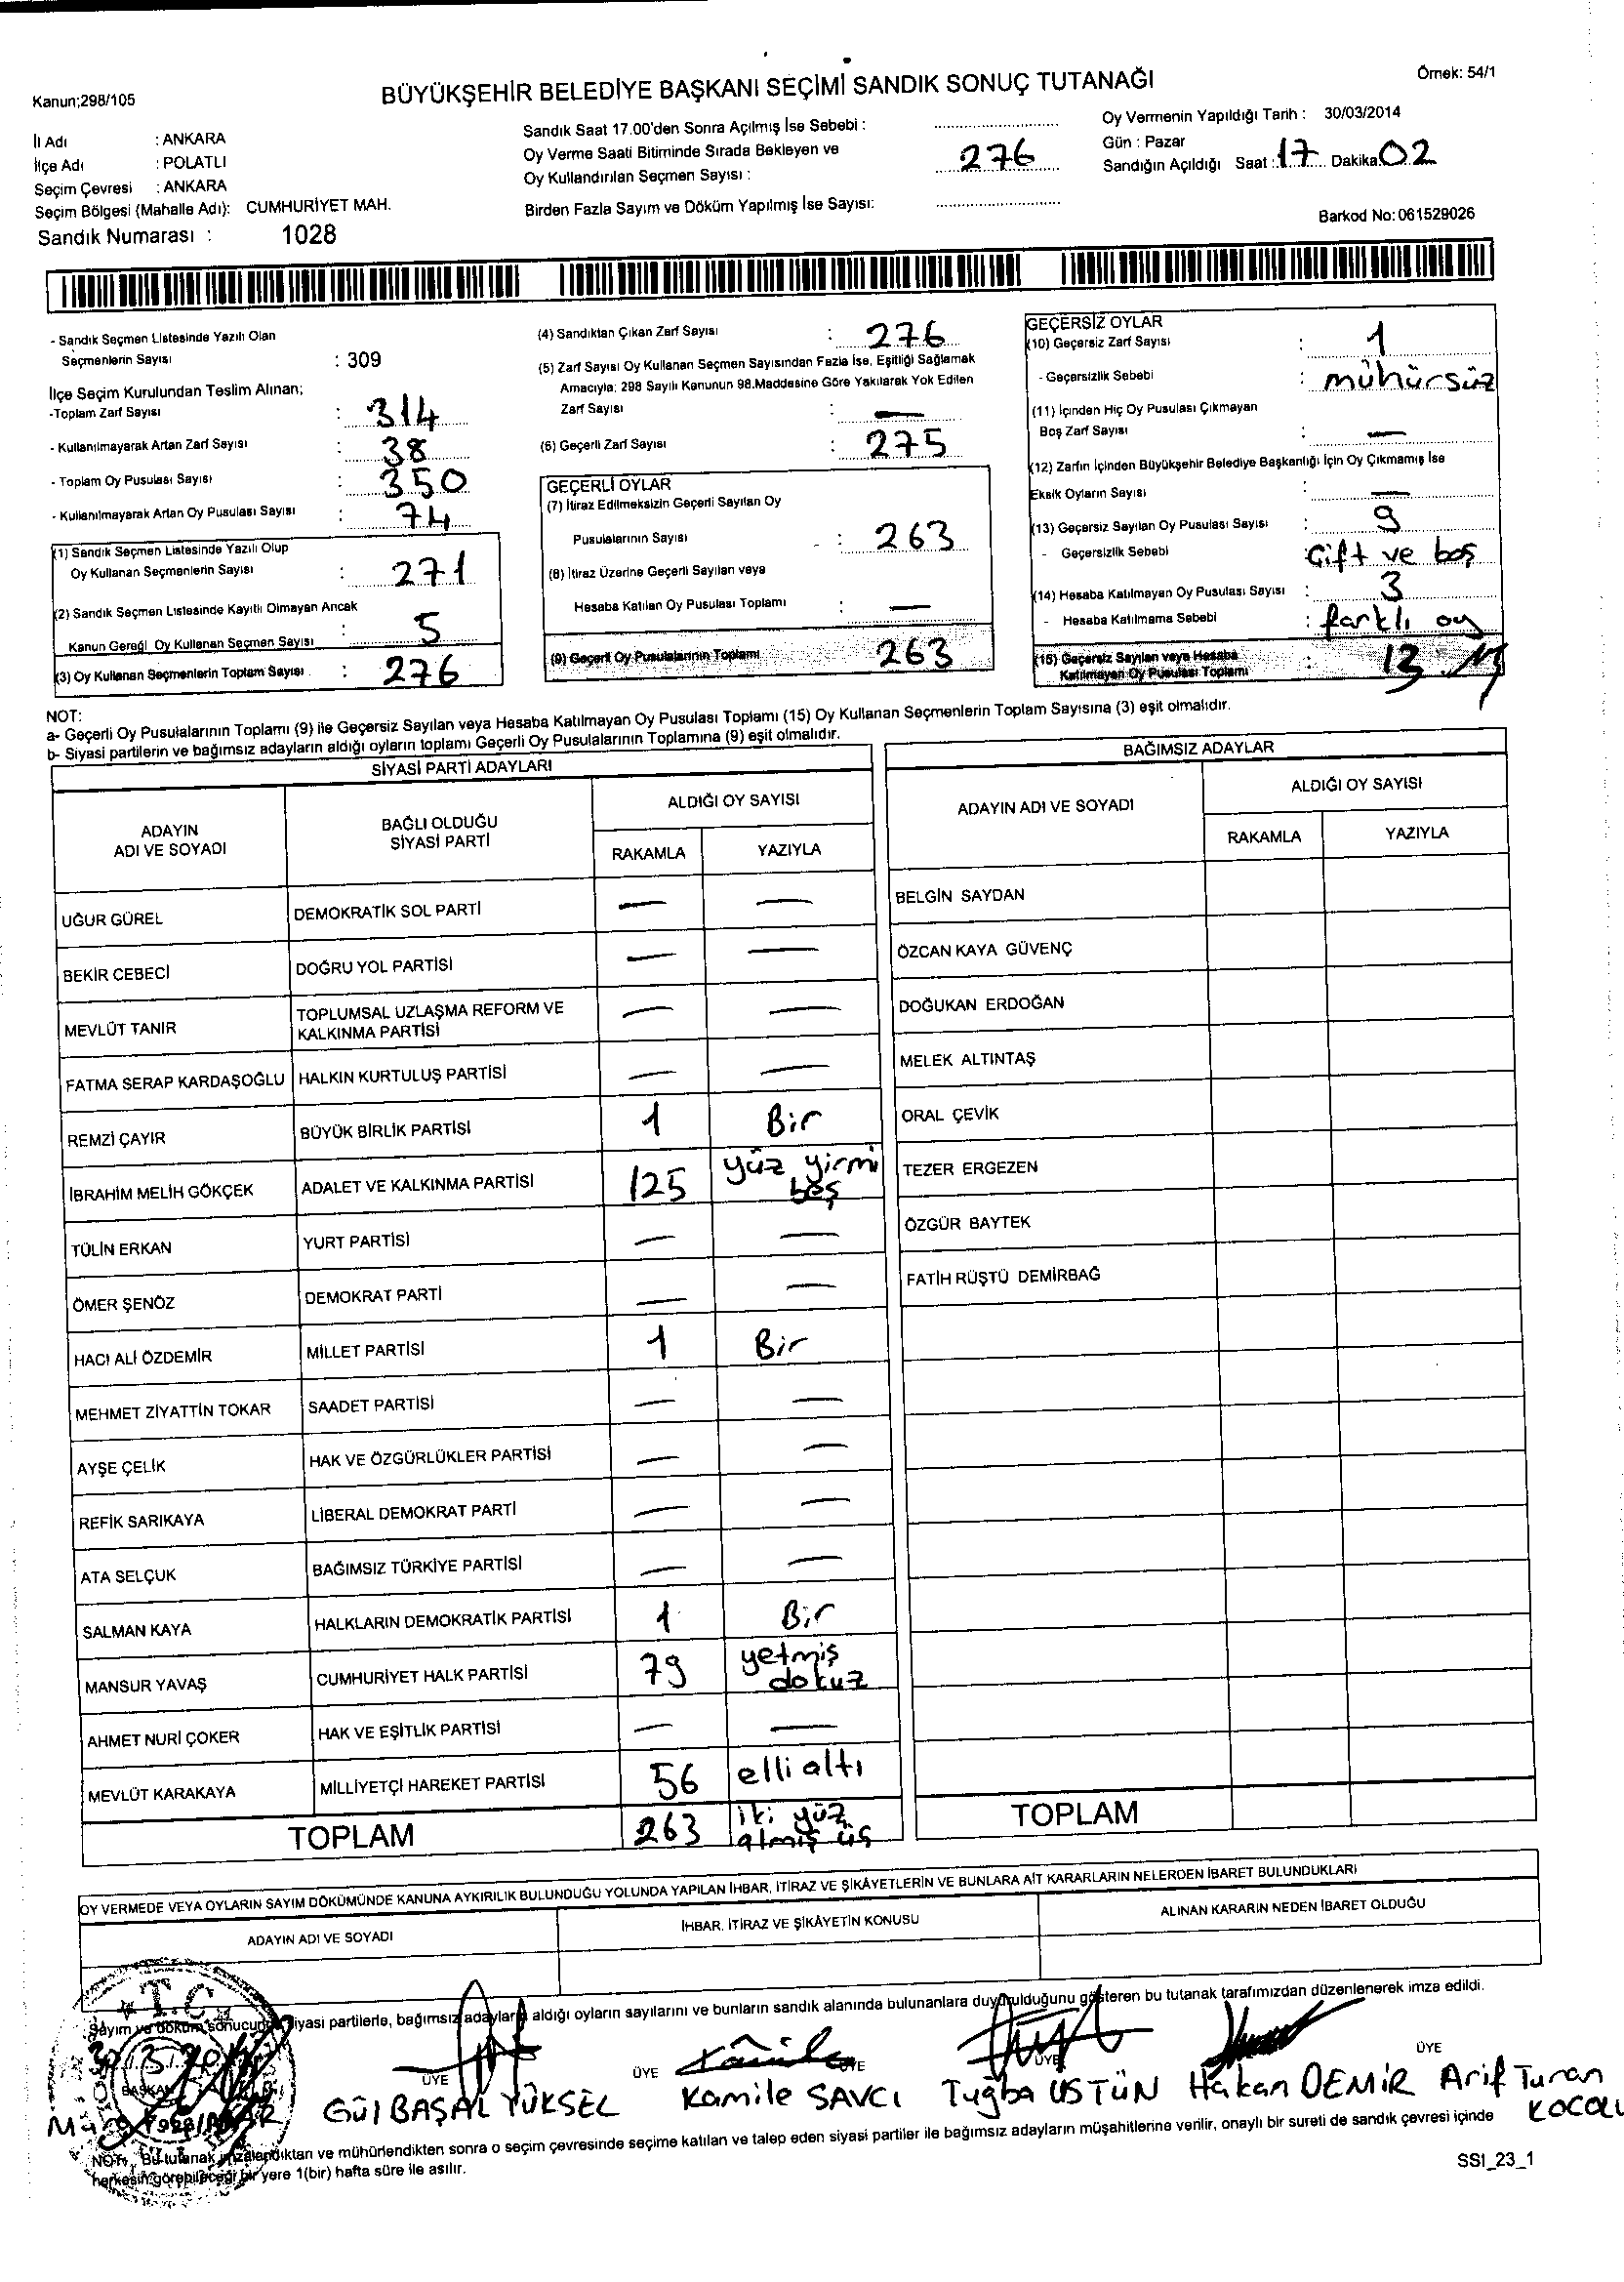 Örnek: 54/1
Kanun;298/105
BÜYÜKŞEHİR BELEDİYE BAŞKANI SEÇİMİ SANDIK SONUÇ TUTANAĞI
İl Adı : ANKARA
İlçe Adı : POLATLI
Seçim Çevresi : ANKARA
Seçim Bölgesi (Mahalle Adı): CUMHURİYET MAH.
Sandık Numarası : 1028
Sandık Saat 17.00'den Sonra Açılmış İse Sebebi :
Oy Verme Saati Bitiminde Sırada Bekleyen ve
Oy Kullandırılan Seçmen Sayısı : 276
Birden Fazla Sayım ve Döküm Yapılmış İse Sayısı:
Oy Vermenin Yapıldığı Tarih : 30/03/2014
Gün : Pazar
Sandığın Açıldığı Saat : 17 Dakika 02
Barkod No: 061529026
- Sandık Seçmen Listesinde Yazılı Olan
Seçmenlerin Sayısı : 309
İlçe Seçim Kurulundan Teslim Alınan;
-Toplam Zarf Sayısı : 314
- Kullanılmayarak Artan Zarf Sayısı : 38
- Toplam Oy Pusulası Sayısı : 350
- Kullanılmayarak Artan Oy Pusulası Sayısı : 74
(1) Sandık Seçmen Listesinde Yazılı Olup
Oy Kullanan Seçmenlerin Sayısı : 271
(2) Sandık Seçmen Listesinde Kayıtlı Olmayan Ancak
Kanun Gereği Oy Kullanan Seçmen Sayısı : 5
(3) Oy Kullanan Seçmenlerin Toplam Sayısı : 276
(4) Sandıktan Çıkan Zarf Sayısı : 276
(5) Zarf Sayısı Oy Kullanan Seçmen Sayısından Fazla İse, Eşitliği Sağlamak
Amacıyla; 298 Sayılı Kanunun 98.Maddesine Göre Yakılarak Yok Edilen
Zarf Sayısı : —
(6) Geçerli Zarf Sayısı : 275
GEÇERLİ OYLAR
(7) İtiraz Edilmeksizin Geçerli Sayılan Oy
Pusulalarının Sayısı : 263
(8) İtiraz Üzerine Geçerli Sayılan veya
Hesaba Katılan Oy Pusulası Toplamı : —
(9) Geçerli Oy Pusulalarının Toplamı 263
GEÇERSİZ OYLAR
(10) Geçersiz Zarf Sayısı : 1
- Geçersizlik Sebebi : mühürsüz
(11) İçinden Hiç Oy Pusulası Çıkmayan
Boş Zarf Sayısı : —
(12) Zarfın İçinden Büyükşehir Belediye Başkanlığı İçin Oy Çıkmamış İse
Eksik Oyların Sayısı : —
(13) Geçersiz Sayılan Oy Pusulası Sayısı : 9
- Geçersizlik Sebebi : Çift ve boş
(14) Hesaba Katılmayan Oy Pusulası Sayısı : 3
- Hesaba Katılmama Sebebi : farklı oy
(15) Geçersiz Sayılan veya Hesaba
Katılmayan Oy Pusulası Toplamı : 13
NOT:
a- Geçerli Oy Pusulalarının Toplamı (9) ile Geçersiz Sayılan veya Hesaba Katılmayan Oy Pusulası Toplamı (15) Oy Kullanan Seçmenlerin Toplam Sayısına (3) eşit olmalıdır.
b- Siyasi partilerin ve bağımsız adayların aldığı oyların toplamı Geçerli Oy Pusulalarının Toplamına (9) eşit olmalıdır.
SİYASİ PARTİ ADAYLARI
ADAYIN ADI VE SOYADI BAĞLI OLDUĞU SİYASİ PARTİ ALDIĞI OY SAYISI
RAKAMLA YAZIYLA
UĞUR GÜREL DEMOKRATİK SOL PARTİ — —
BEKİR CEBECİ DOĞRU YOL PARTİSİ — —
MEVLÜT TANIR TOPLUMSAL UZLAŞMA REFORM VE KALKINMA PARTİSİ — —
FATMA SERAP KARDAŞOĞLU HALKIN KURTULUŞ PARTİSİ — —
REMZİ ÇAYIR BÜYÜK BİRLİK PARTİSİ 1 Bir
İBRAHİM MELİH GÖKÇEK ADALET VE KALKINMA PARTİSİ 125 yüz yirmi beş
TÜLİN ERKAN YURT PARTİSİ — —
ÖMER ŞENÖZ DEMOKRAT PARTİ — —
HACI ALİ ÖZDEMİR MİLLET PARTİSİ 1 Bir
MEHMET ZİYATTİN TOKAR SAADET PARTİSİ — —
AYŞE ÇELİK HAK VE ÖZGÜRLÜKLER PARTİSİ — —
REFİK SARIKAYA LİBERAL DEMOKRAT PARTİ — —
ATA SELÇUK BAĞIMSIZ TÜRKİYE PARTİSİ — —
SALMAN KAYA HALKLARIN DEMOKRATİK PARTİSİ 1 Bir
MANSUR YAVAŞ CUMHURİYET HALK PARTİSİ 79 yetmiş dokuz
AHMET NURİ ÇOKER HAK VE EŞİTLİK PARTİSİ — —
MEVLÜT KARAKAYA MİLLİYETÇİ HAREKET PARTİSİ 56 elli altı
TOPLAM 263 iki yüz atmış üç
BAĞIMSIZ ADAYLAR
ADAYIN ADI VE SOYADI ALDIĞI OY SAYISI
RAKAMLA YAZIYLA
BELGİN SAYDAN
ÖZCAN KAYA GÜVENÇ
DOĞUKAN ERDOĞAN
MELEK ALTINTAŞ
ORAL ÇEVİK
TEZER ERGEZEN
ÖZGÜR BAYTEK
FATİH RÜŞTÜ DEMİRBAĞ
TOPLAM
OY VERMEDE VEYA OYLARIN SAYIM DÖKÜMÜNDE KANUNA AYKIRILIK BULUNDUĞU YOLUNDA YAPILAN İHBAR, İTİRAZ VE ŞİKÂYETLERİN VE BUNLARA AİT KARARLARIN NELERDEN İBARET BULUNDUKLARI
ADAYIN ADI VE SOYADI İHBAR, İTİRAZ VE ŞİKÂYETİN KONUSU ALINAN KARARIN NEDEN İBARET OLDUĞU
T.C.
Sayım ve döküm sonucunda siyasi partilerle, bağımsız adayların aldığı oyların sayılarını ve bunların sandık alanında bulunanlara duyurulduğunu gösteren bu tutanak tarafımızdan düzenlenerek imza edildi.
BAŞKAN ÜYE ÜYE ÜYE ÜYE ÜYE
Gül BAŞAL YÜKSEL Kamile SAVCI Tuğba ÜSTÜN Hakan DEMİR Arif Turan KOCOLU
NOT: Bu tutanak imzalandıktan ve mühürlendikten sonra o seçim çevresinde seçime katılan ve talep eden siyasi partiler ile bağımsız adayların müşahitlerine verilir, onaylı bir sureti de sandık çevresi içinde
herkesin görebileceği bir yere 1(bir) hafta süre ile asılır.
SSI_23_1